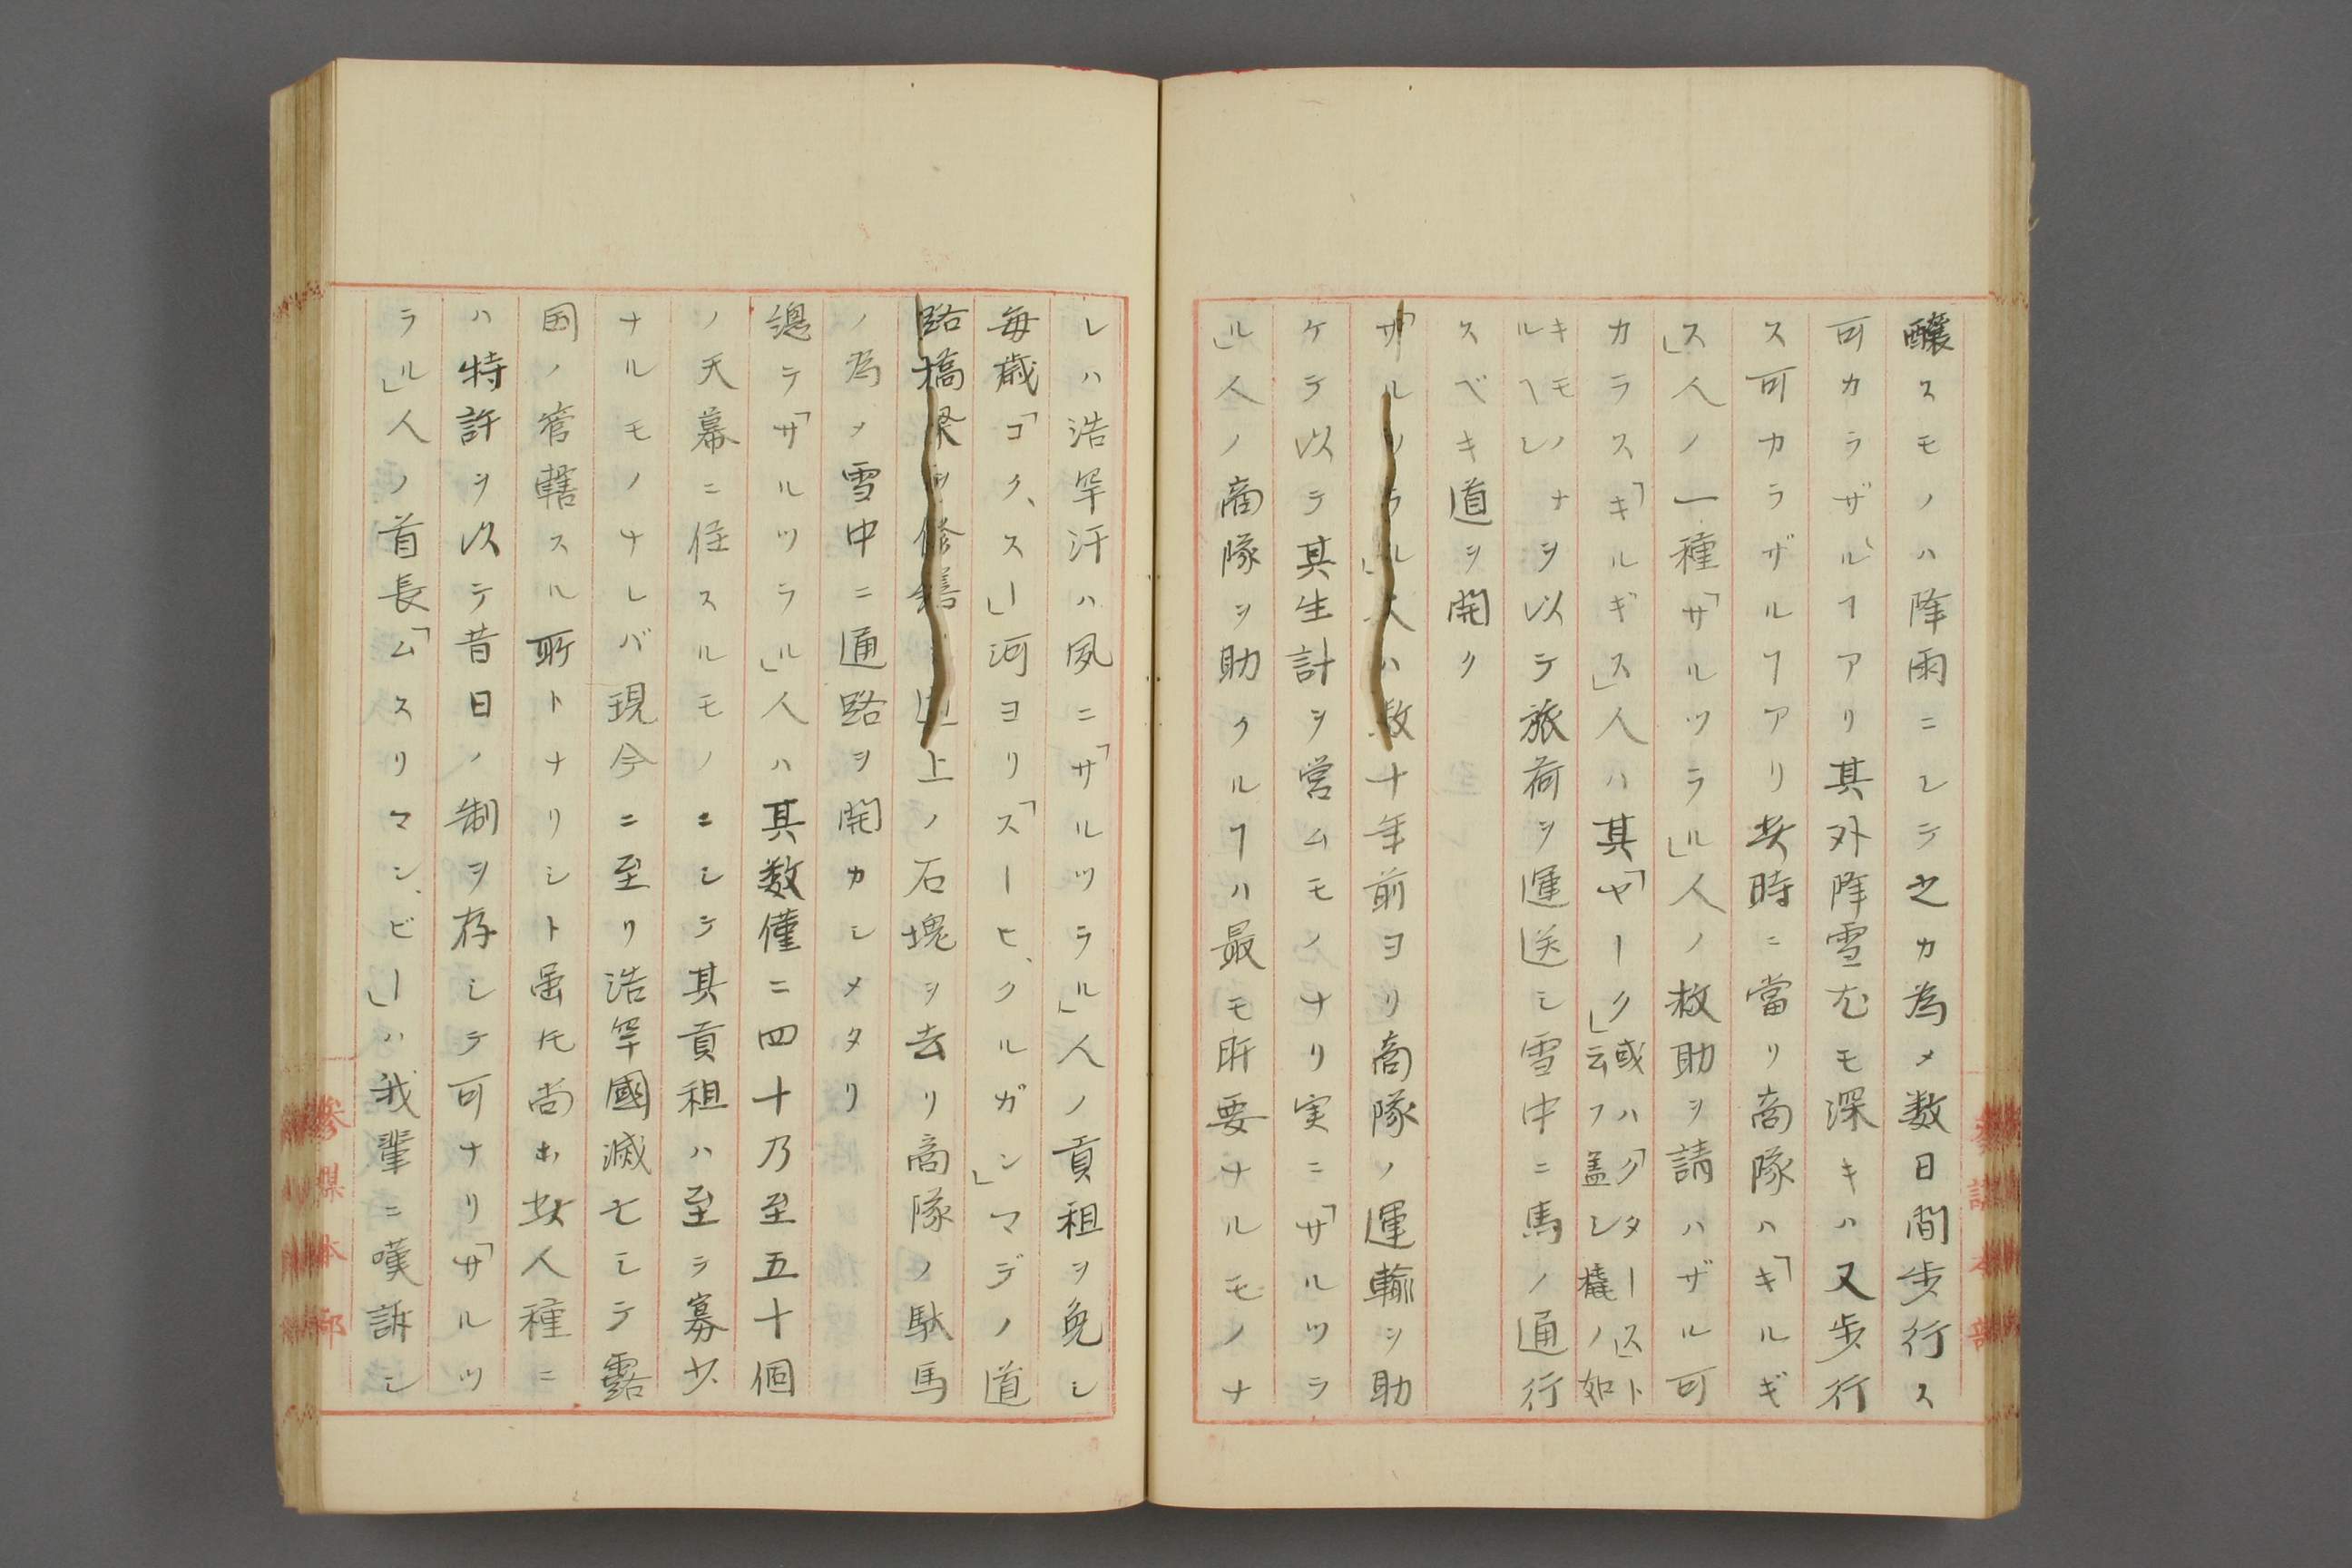 醸スモノハ降雨ニシテ之カ為メ数日間歩行ス
可カラザルヿアリ其外降雪尤モ深キハ又歩行
ス可カラザルヿアリ此時ニ當リ商隊ハ「キルギ
ス」人ノ一種「サルツラル」人ノ救助ヲ請ハザル可
カラス「キルギス」人ハ其「ヤーク」或ハ「クタース」ト
云フ蓋シ橇ノ如
キモノナ
ルヘシ
ヲ以テ旅荷ヲ運送シ雪中ニ馬ノ通行
スベキ道ヲ開ク
「サルツラル」人ハ数十年前ヨリ商隊ノ運輸ヲ助
ケテ以テ其生計ヲ営ムモノナリ実ニ「サルツラ
ル」人ノ商隊ヲ助クルヿハ最モ肝要ナルモノナ
レハ浩罕汗ハ夙ニ「サルツラル」人ノ貢租ヲ免シ
毎歳「コク、スー」河ヨリ「スーヒ、クルガン」マデノ道
路橋梁ヲ修繕シ上ノ石塊ヲ去リ商隊ノ駄馬
ノ為メ雪中ニ通路ヲ開カシメタリ
總テ「サルツラル」人ハ其数僅ニ四十乃至五十個
ノ天幕ニ住スルモノニシテ其貢租ハ至ラ寡少
ナルモノナレバ現今ニ至リ浩罕國滅亡シテ露
国ノ管轄スル所トナリシト虽𪜈尚ホ此人種ニ
ハ特許ヲ以テ昔日ノ制ヲ存シテ可ナリ「サルツ
ラル」人ノ首長「ムスリマン、ビー」ハ我輩ニ嘆訴シ
參謀本部
參謀本部